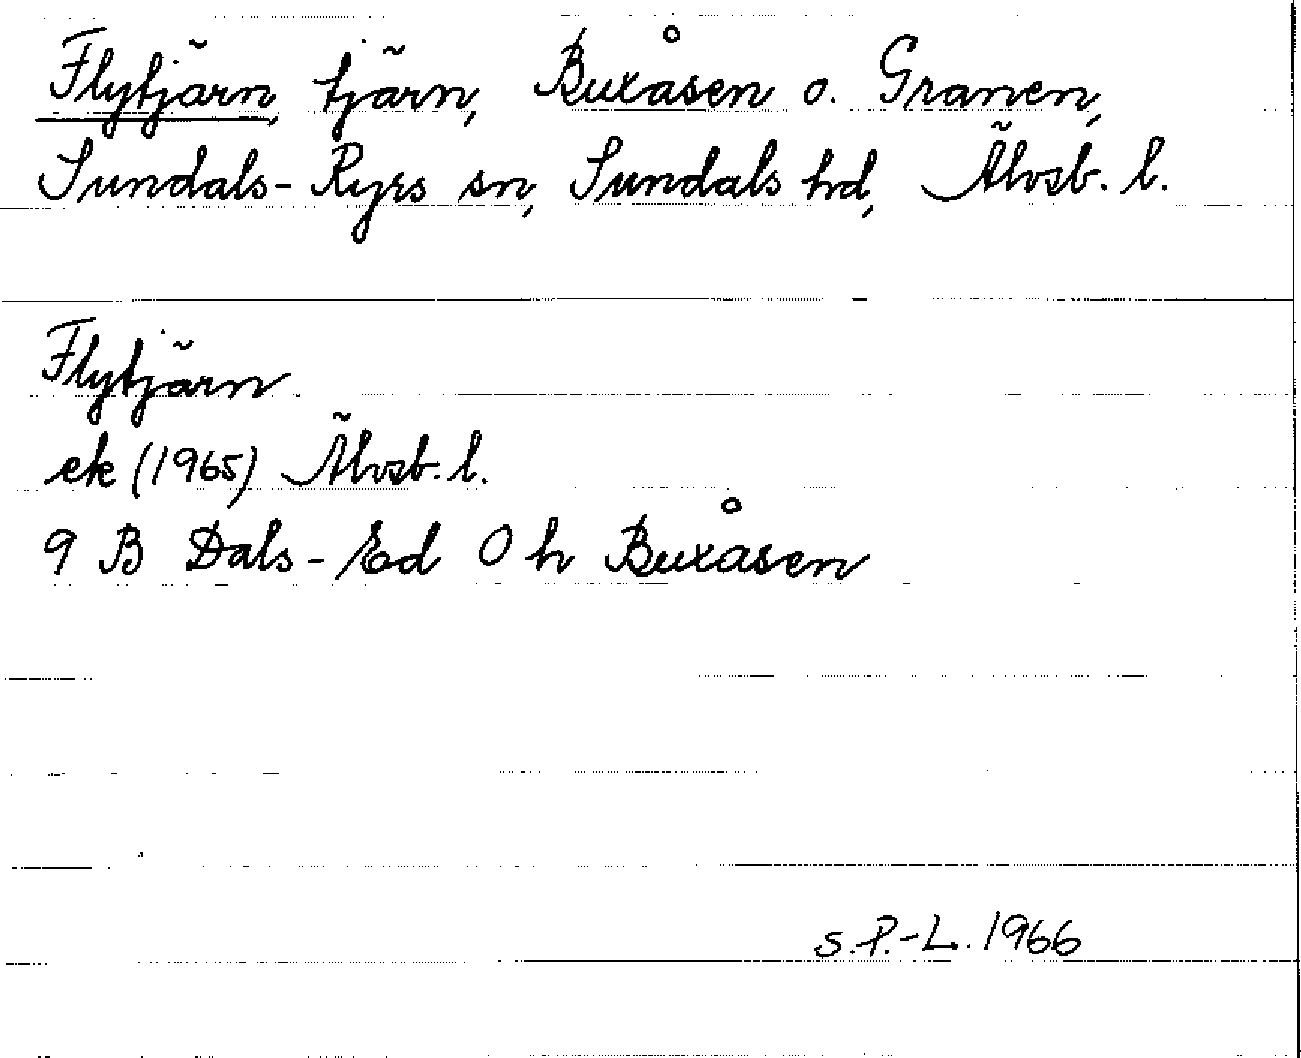 Flytjärn, tjärn, Buxåsen o. Granen,
Sundals-Ryrs sn, Sundals hd, Älvsb. l.
Flytjärn
ek (1965) Älvsb. l.
9 B Dals-Ed 0 h Buxåsen
S.P.-L. 1966